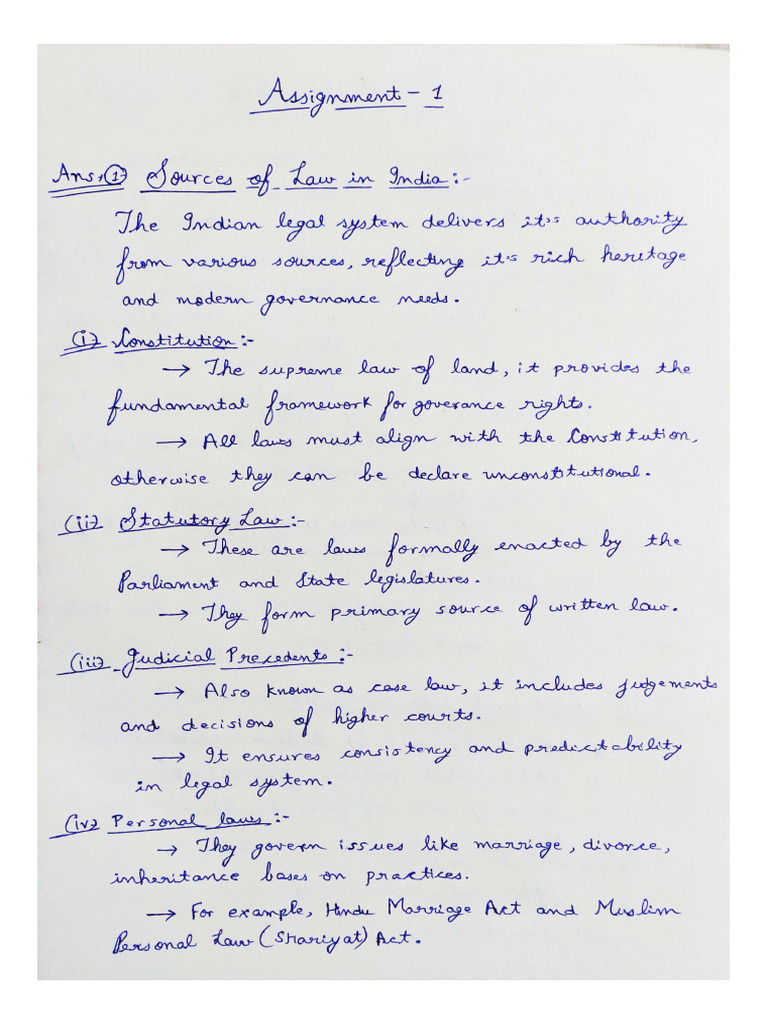 Assignment - 1
Ans,(1) Sources of Law in India :-
The Indian legal system delivers it's authority
from various sources, reflecting it's rich heritage
and modern governance needs.
(i) Constitution :-
→ The supreme law of land, it provides the
fundamental framework for goverance rights.
→ All laws must align with the Constitution,
otherwise they can be declare unconstitutional.
(ii) Statutory Law :-
→ These are laws formally enacted by the
Parliament and State legislatures.
→ They form primary source of written law.
(iii) Judicial Precedents :-
→ Also known as case law, it includes judgements
and decisions of higher courts.
→ It ensures consistency and predictability
in legal system.
(iv) Personal laws :-
→ They govern issues like marriage, divorce,
inheritance bases on practices.
→ For example, Hindu Marriage Act and Muslim
Personal Law (Shariyat) Act.